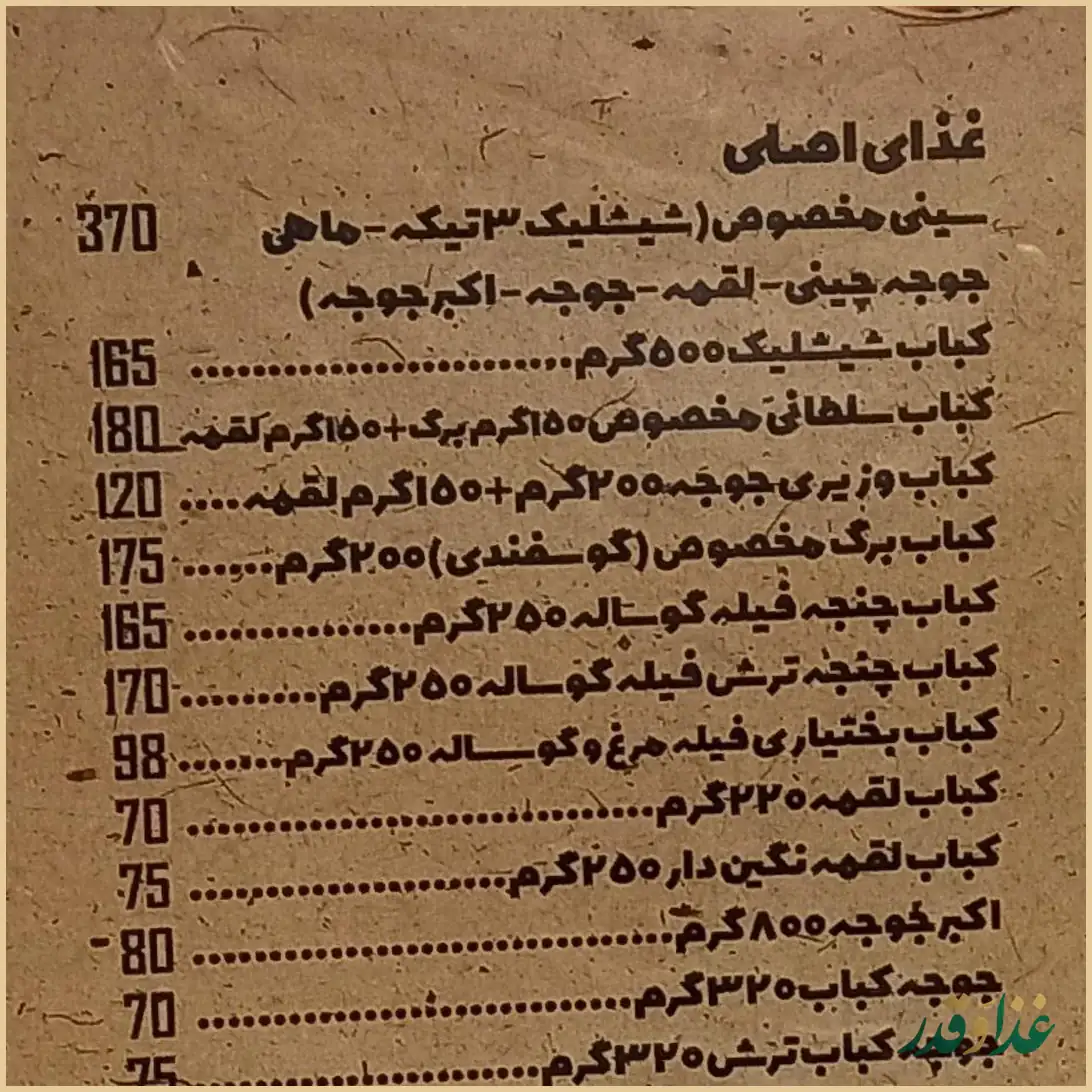 غذای اصلی
سینی مخصوص (شیشلیک ۳ تیکه - ماهی 370
جوجه چینی - لقمه - جوجه - اکبر جوجه)
کباب شیشلیک ۵۰۰ گرم .......................... 165
کباب سلطانی مخصوص ۱۵۰ گرم برگ + ۱۵۰ گرم لقمه 180
کباب وزیری جوجه ۲۰۰ گرم + ۱۵۰ گرم لقمه ..... 120
کباب برگ مخصوص (گوسفندی) ۲۰۰ گرم ....... 175
کباب چنجه فیله گوساله ۲۵۰ گرم ............... 165
کباب چنجه ترش فیله گوساله ۲۵۰ گرم .......... 170
کباب بختیاری فیله مرغ و گوساله ۲۵۰ گرم ....... 98
کباب لقمه ۲۲۰ گرم ............................... 70
کباب لقمه نگین دار ۲۵۰ گرم .................... 75
اکبر جوجه ۸۰۰ گرم ................................ 80
جوجه کباب ۳۲۰ گرم ............................. 70
جوجه کباب ترش ۳۲۰ گرم ...................... 75
غذا و قدر